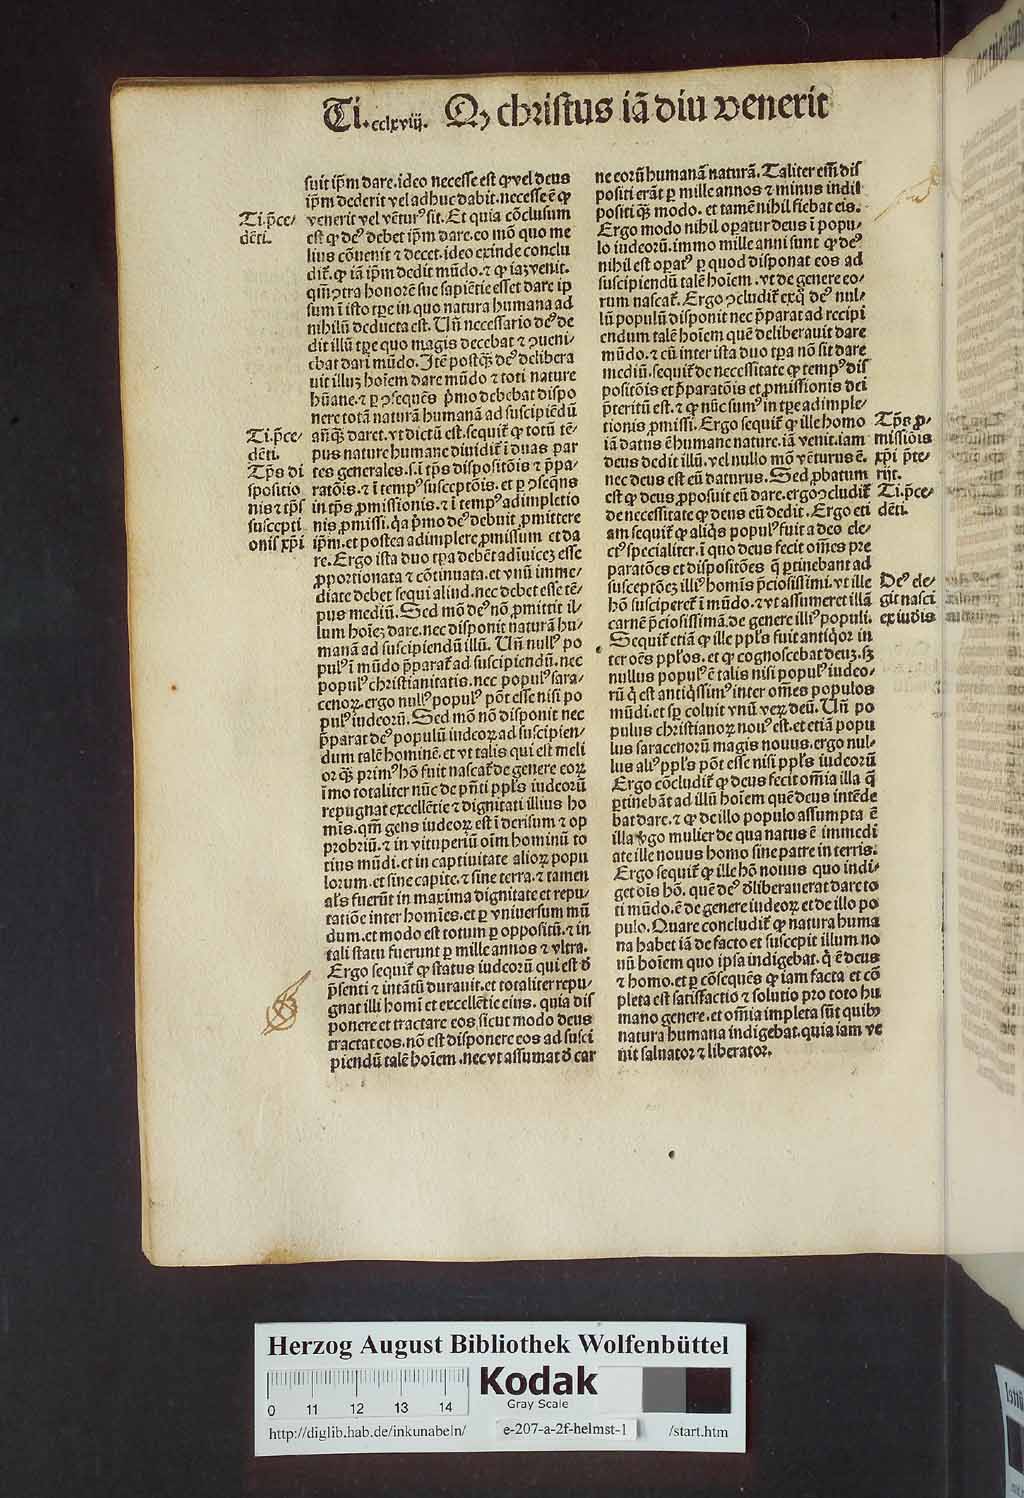 Ti.cclxviij. Qꝫ christus iã diu venerit
suit ip̃m dare. ideo necesse est ꝙ vel deus
ip̃m dederit vel adhuc dabit. necesse ē ꝙ
venerit vel vētur⁹ sit. Et quia cōclusum
est ꝙ de⁹ debet ip̃m dare. eo mō quo me
lius cōuenit ⁊ decet. ideo exinde conclu
dit̃. ꝙ iã ip̃m dedit mũdo. ⁊ ꝙ iaꝫ venit.
qm̃ ↄtra honorẽ sue sapiẽtie esset dare ip
sum ĩ isto tp̃e in quo natura humana ad
nihilũ deducta est. Uñ necessario de⁹ de
dit illũ tp̃e quo magis decebat ⁊ ↄueni-
ebat dari mũdo. Itẽ postqꝫ de⁹ delibera
uit illuꝫ hoĩem dare mũdo ⁊ toti nature
hũane. ⁊ ꝑ ↄsequẽs p̃mo debebat dispo
nere totã naturã humanã ad suscipiẽdũ
añqꝫ daret. vt dictũ est. sequit̃ ꝙ totũ tẽ-
pus nature humane diuidit̃ ĩ duas par
tes generales. s. ĩ tp̃s dispositõis ⁊ p̃pa-
ratõis. ⁊ ĩ temp⁹ susceptõis. et ꝑ ↄseq̃ns
in tp̃s ꝓmissionis. ⁊ ĩ temp⁹ adimpletio
nis ꝓmissi. q̃a p̃mo de⁹ debuit ꝓmittere
ip̃m. et postea adimplere ꝓmissum et da
re. Ergo ista duo tp̃a debẽt adĩuiceꝫ esse
ꝓportionata ⁊ cõtinuata. et vnũ imme-
diate debet sequi aliud. nec debet esse tẽ-
pus mediũ. Sed mõ de⁹ nõ ꝓmittit il-
lum hoĩeꝫ dare. nec disponit naturã hu-
manã ad suscipiendũ illũ. Uñ null⁹ po
pul⁹ ĩ mũdo p̃parat̃ ad suscipiendũ. nec
popul⁹ christianitatis. nec popul⁹ sara-
cenoꝝ. ergo null⁹ popul⁹ põt esse nisi po
pul⁹ iudeorũ. Sed mõ nõ disponit nec
p̃parat de⁹ populũ iudeoꝝ ad suscipien-
dum talẽ hominẽ. et vt talis qui est meli
or qꝫ prim⁹ hõ fuit nascat̃ de genere eoꝝ
ĩmo totaliter nũc de p̃ñti ppl̃s iudeorũ
repugnat excellẽtie ⁊ dignitati illius ho
mĩs. qm̃ gens iudeoꝝ est ĩ derisum ⁊ op
probriũ. ⁊ in vituperiũ oĩm hominũ to
tius mũdi. et in captiuitate alioꝝ popu
lorum. et sine capite. ⁊ sine terra. ⁊ tamen
al̃s fuerũt in maxima dignitate et repu-
tatiõe inter homĩes. et ꝑ vniuersum mũ
dum. et modo est totum ꝑ oppositũ. ⁊ in
tali statu fuerunt ꝑ mille annos ⁊ vltra.
Ergo sequit̃ ꝙ status iudeorũ qui est ď
p̃senti ⁊ intãtũ durauit. et totaliter repu-
gnat illi homĩ et excellẽtie eius. quia dis
ponere et tractare eos sicut modo deus
tractat eos. nõ est disponere eos ad susci
piendũ talẽ hoĩem. nec vt assumat ď car
ne eorũ humanã naturã. Taliter em̃ dis
positi erãt ꝑ mille annos ⁊ minus indis
positi qꝫ modo. et tamẽ nihil fiebat eis.
Ergo modo nihil oꝑatur deus ĩ popu-
lo iudeorũ. immo mille anni sunt ꝙ de⁹
nihil est oꝑat⁹ ꝑ quod disponat eos ad
suscipiendũ talẽ hoĩem. vt de genere eo-
rum nascat̃. Ergo ↄcludit̃ exq̃ de⁹ nul-
lũ populũ disponit nec p̃parat ad recipi
endum talẽ hoĩem quẽ deliberauit dare
mũdo. ⁊ cũ inter ista duo tp̃a nõ sit dare
mediũ. sequit̃ de necessitate ꝙ temp⁹ dis
positõis et p̃paratõis et ꝓmissionis dei
p̃teritũ est. ⁊ ꝙ nũc sum⁹ in tp̃e adimple-
tionis ꝓmissi. Ergo sequit̃ ꝙ ille homo
iã datus ẽ humane nature. iã venit. iam
deus dedit illũ. vel nullo mõ vẽturus ẽ.
nec deus est eũ daturus. Sed ꝓbatum
est ꝙ deus ꝓposuit eũ dare. ergo ↄcludit̃
de necessitate ꝙ deus eũ dedit. Ergo eti
am sequit̃ ꝙ aliq̃s popul⁹ fuit a deo ele-
ct⁹ specialiter. ĩ quo deus fecit om̃es pre
paratões et dispositões q̃ ꝑtinebant ad
susceptõeꝫ illi⁹ homĩs p̃ciosissimi. vt ille
hõ susciperet̃ ĩ mũdo. ⁊ vt assumeret illã
carnẽ p̃ciosissimã. de genere illi⁹ populi.
Sequit̃ etiã ꝙ ille ppl̃s fuit antiq̃or in
ter oẽs ppl̃os. et ꝙ cognoscebat deuꝫ. sꝫ
nullus popul⁹ ẽ talis nisi popul⁹ iudeo-
rũ q̃ est antiq̃ssim⁹ inter om̃es populos
mũdi. et sp̃ coluit vnũ veꝝ deũ. Uñ po
pulus christianoꝝ nou⁹ est. et etiã popu
lus saracenorũ magis nouus. ergo nul-
lus ali⁹ ppl̃s põt esse nisi ppl̃s iudeorũ
Ergo cõcludit̃ ꝙ deus fecit om̃ia illa q̃
ꝑtinebãt ad illũ hoĩem quẽ deus intẽde
bat dare. ⁊ ꝙ de illo populo assumpta ẽ
illa ṽgo mulier de qua natus ẽ immedi
ate ille nouus homo sine patre in terris.
Ergo sequit̃ ꝙ ille hõ nouus quo indi-
get oĩs hõ. quẽ de⁹ ďliberauerat dare to
ti mũdo. ẽ de genere iudeoꝝ et de illo po
pulo. Quare concludit̃ ꝙ natura huma
na habet iã de facto et suscepit illum no
uũ hoĩem quo ipsa indigebat. q̃ ẽ deus
⁊ homo. et ꝑ cõsequẽs ꝙ iam facta et cõ
pleta est satisfactio ⁊ solutio pro toto hu
mano genere. et om̃ia impleta sũt quibꝫ
natura humana indigebat. quia iam ve
nit saluator ⁊ liberator.
Ti. p̃ce-
dẽti.
Ti. p̃ce-
dẽti.
Tp̃s di
spositio
nis ⁊ tp̃s
suscepti
onis xp̃i
Tp̃s ꝓ-
missiõis
xp̃i p̃te-
rijt.
Ti. p̃ce-
dẽti.
De⁹ ele-
git nasci
ex iudĩs
Herzog August Bibliothek Wolfenbüttel
Kodak
Gray Scale
0 11 12 13 14
http://diglib.hab.de/inkunabeln/ e-207-a-2f-helmst-1 /start.htm